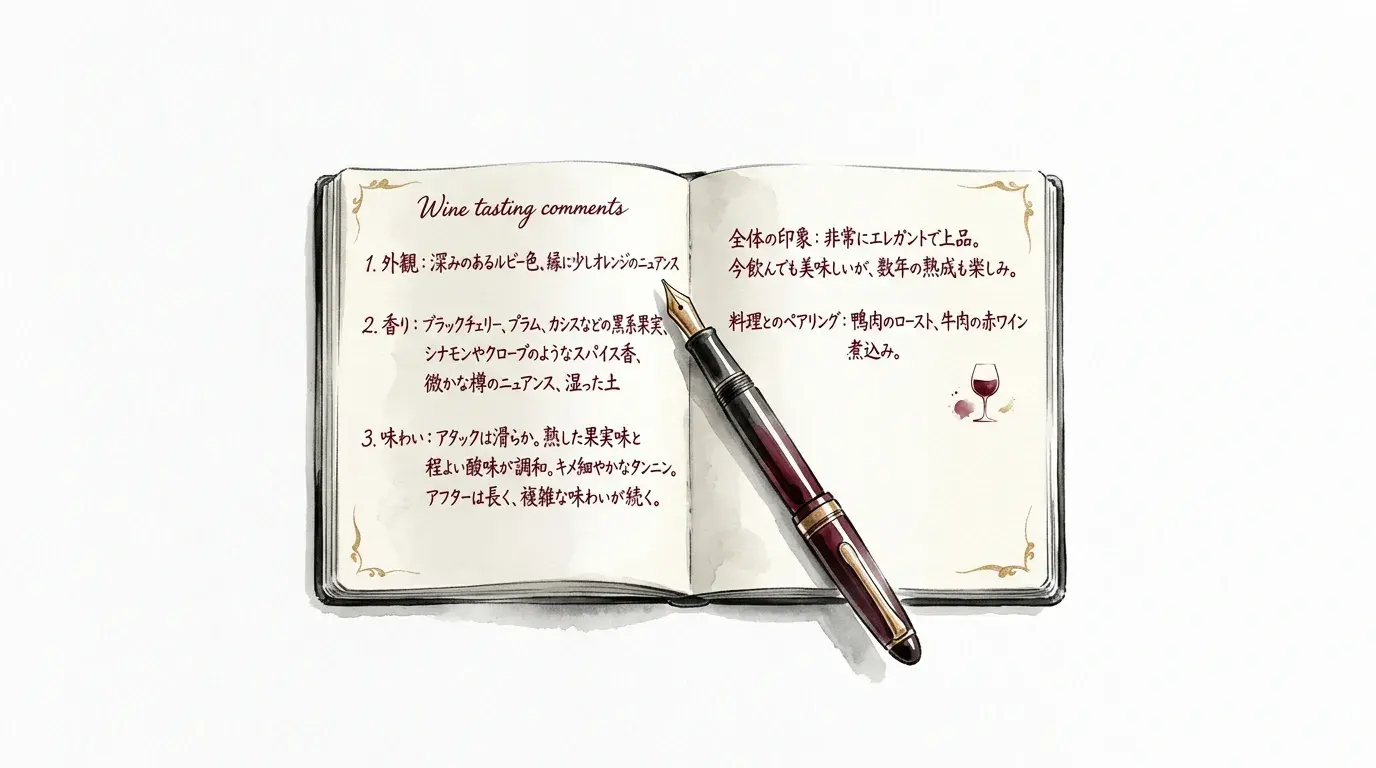 Wine tasting comments
1. 外観：深みのあるルビー色、縁に少しオレンジのニュアンス
2. 香り：ブラックチェリー、プラム、カシスなどの黒系果実、
シナモンやクローブのようなスパイス香、
微かな樽のニュアンス、湿った土
3. 味わい：アタックは滑らか。熟した果実味と
程よい酸味が調和。キメ細やかなタンニン。
アフターは長く、複雑な味わいが続く。
全体の印象：非常にエレガントで上品。
今飲んでも美味しいが、数年の熟成も楽しみ。
料理とのペアリング：鴨肉のロースト、牛肉の赤ワイン
煮込み。